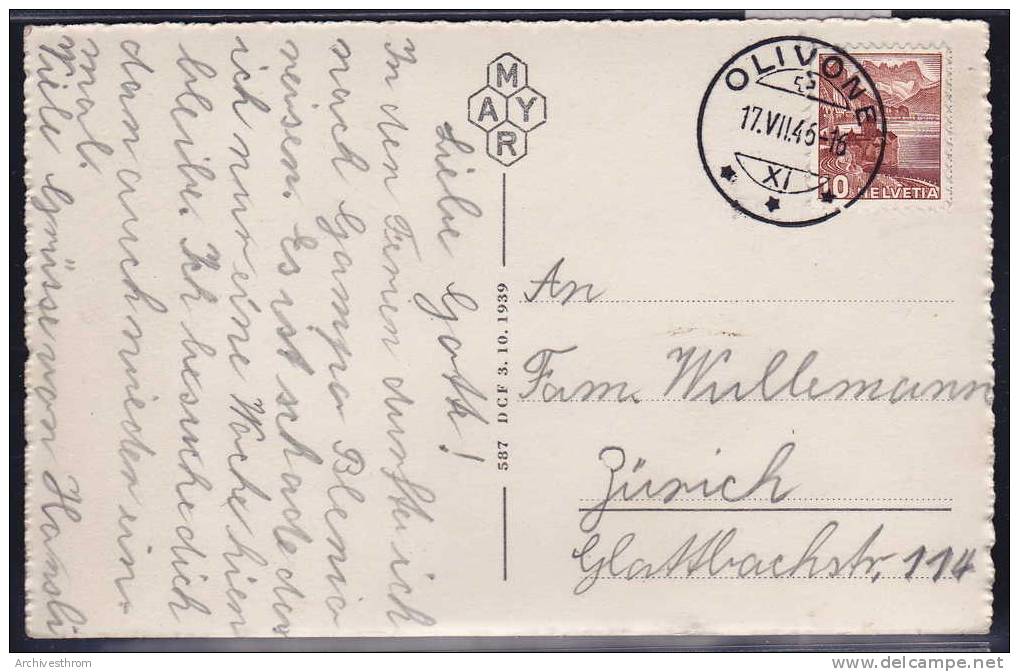 Liebe Gotti!
In den Ferien durfte ich
nach Campo Blenio
reisen. Es ist schade das
ich nur eine Woche hier
bleibe. Ich besuche dich
dann auch wieder ein-
mal.
Viele Grüsse von Hansli
MAYR
587 DCF 3.10.1939
OLIVONE
17.VII.46-16
XI
10 HELVETIA
An
Fam. Wullemann
Zürich
Glattbachstr, 114
Archivesthrom
delcampe.net